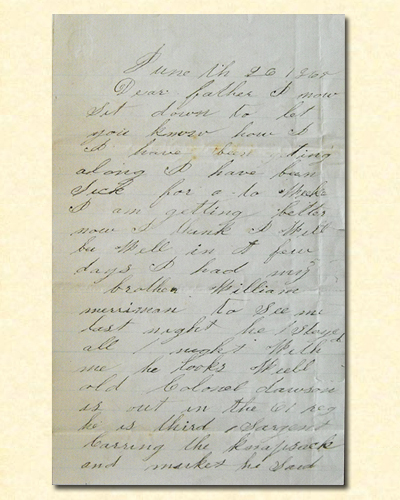 June th 26 186
Dear father I now
Sit down to let
you know how I
I have ben geting
along I have been
Sick for a to Weeks
I am getting better
now I think I Will
be Well in A few
days I had my
brother William
merriman to See me
last night he Stayed
all night With
me he looks Well
old Colonel dawson
is out in the 61 reg
he is third Sargent
Carring the knapsack
and musket he Said